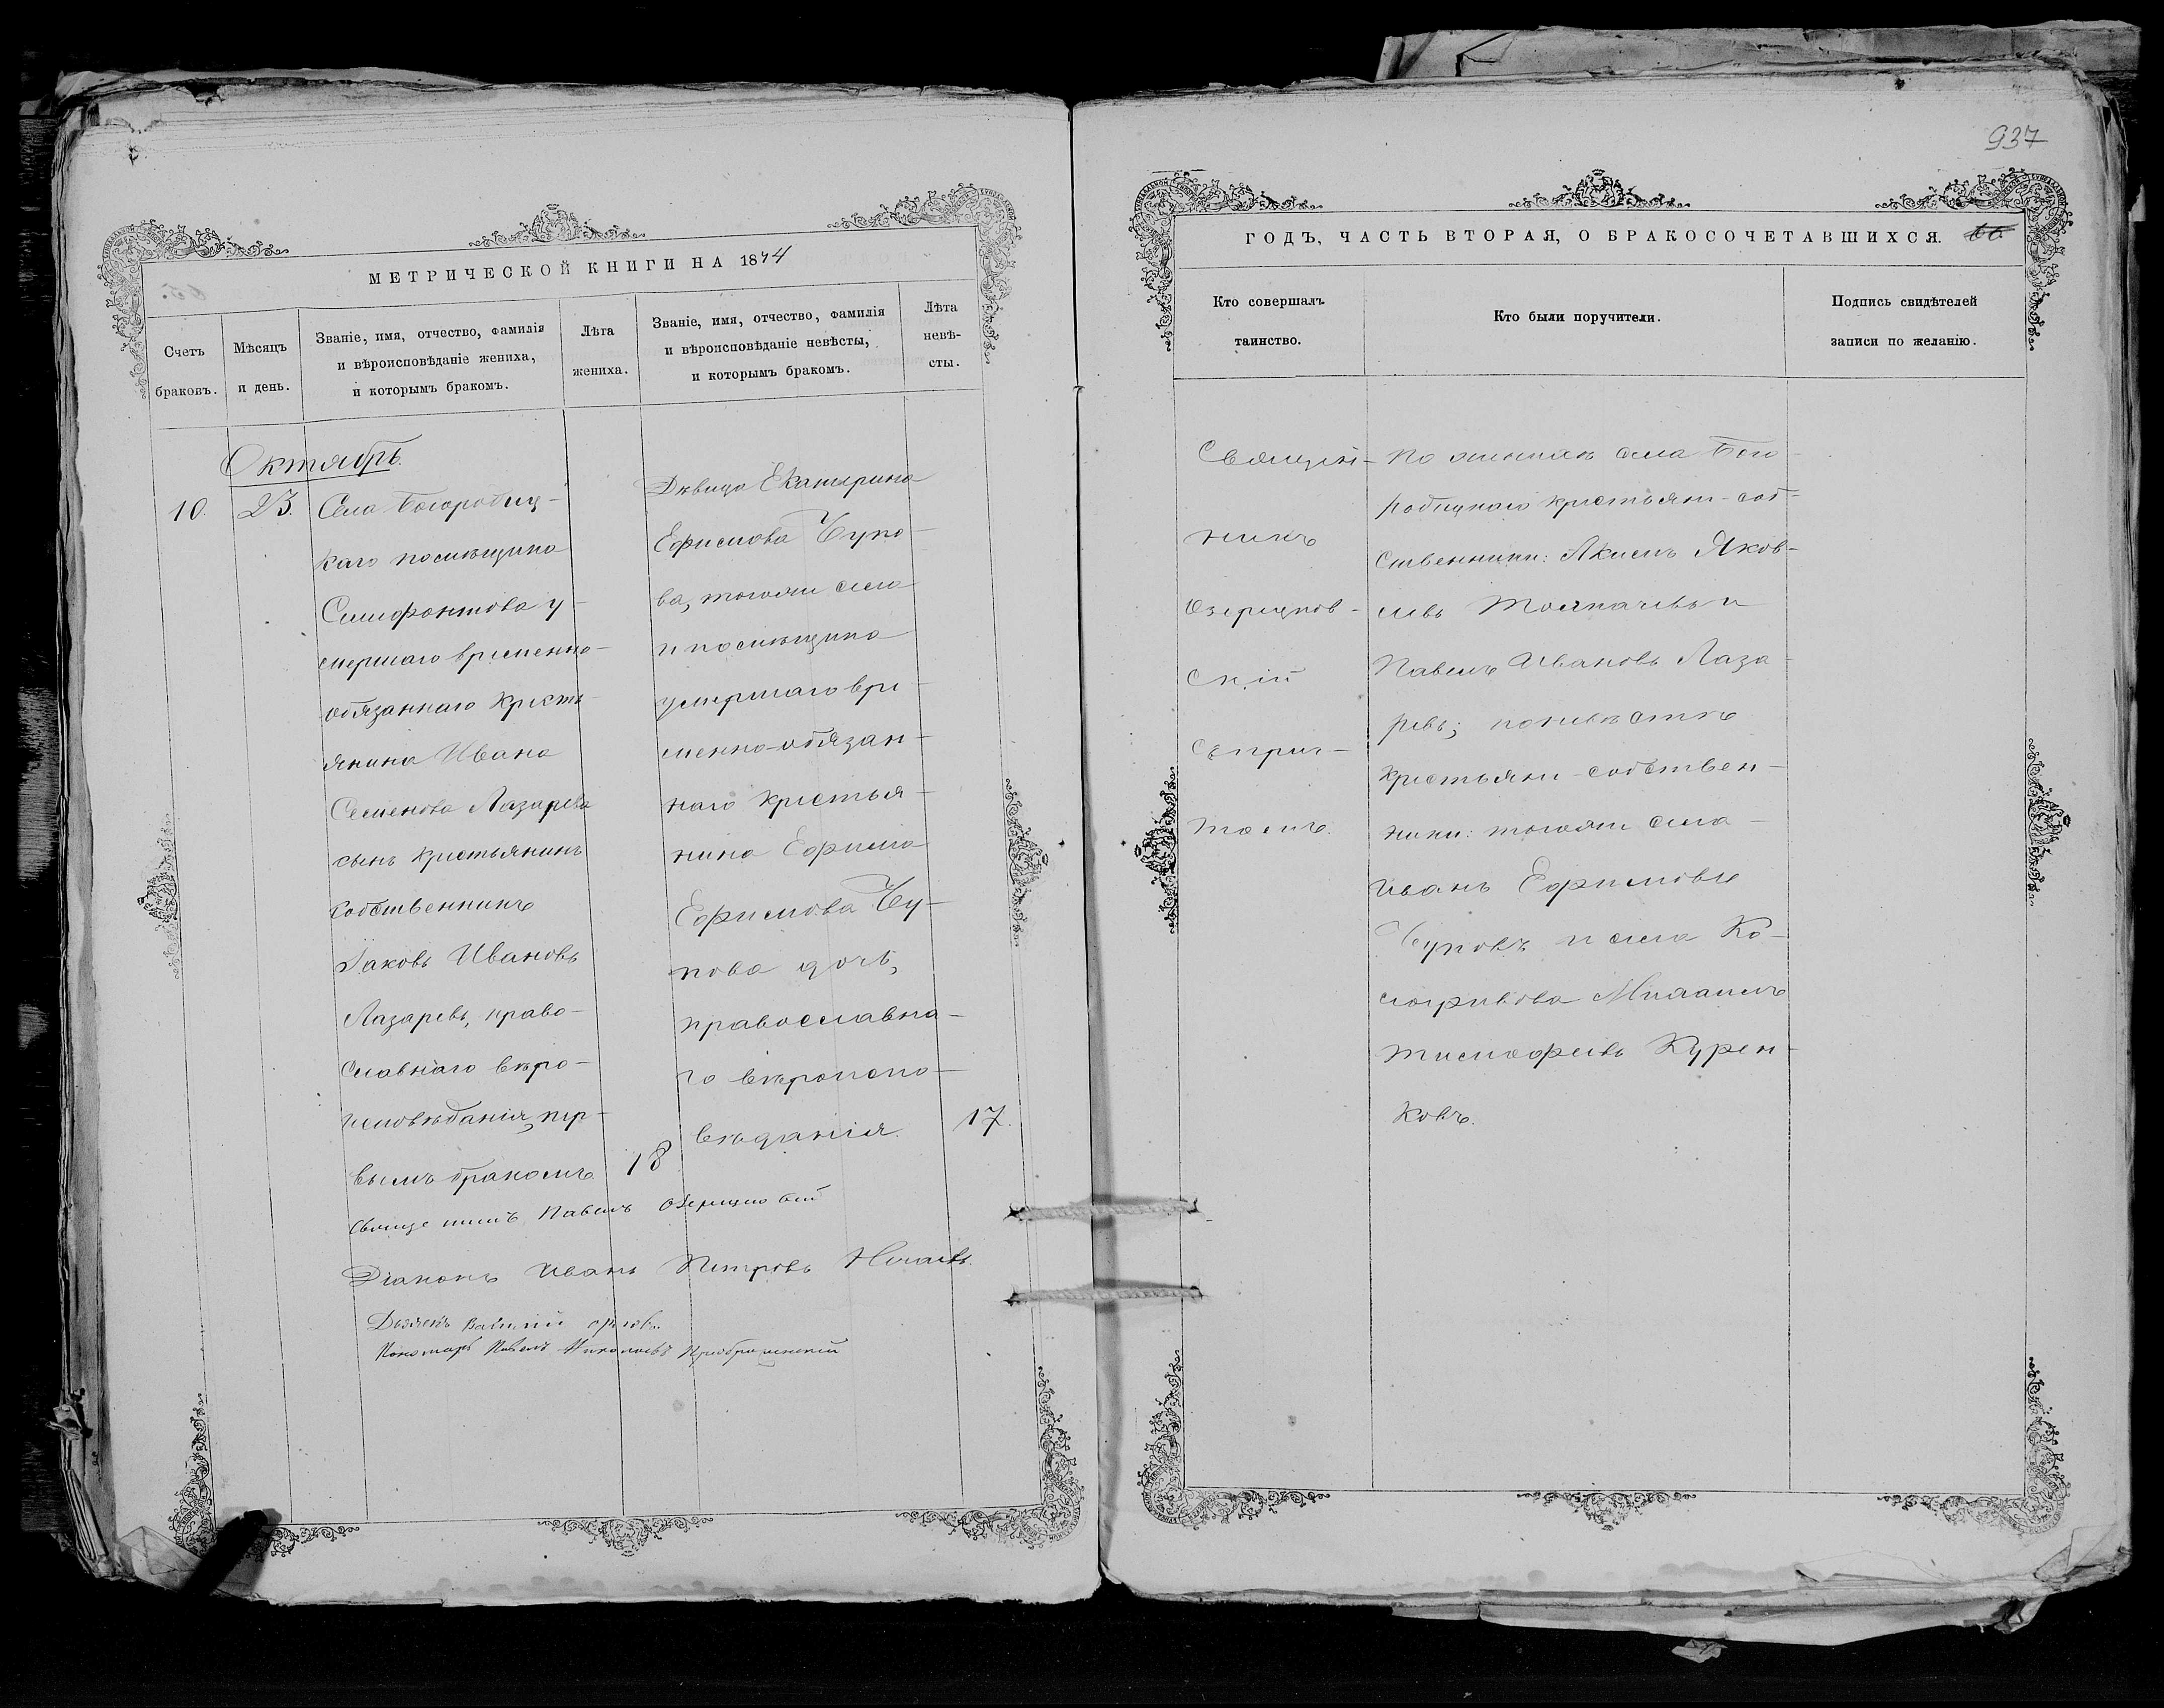 937
МЕТРИЧЕСКОЙ КНИГИ НА 1874
Счетъ
браковъ.
Мѣсяцъ
и день.
Званіе, имя, отчество, фамилія
и вѣроисповѣданіе жениха,
и которымъ бракомъ.
Лѣта
жениха.
Званіе, имя, отчество, фамилія
и вѣроисповѣданіе невѣсты,
и которымъ бракомъ.
Лѣта
невѣ-
сты.
Октябрь.
10.
23.
Села Богородиц-
каго помѣщика
Симофонтова у-
мершаго временно-
обязаннаго кресть-
янина Ивана
Семенова Лазарева
сынъ крестьянинъ
собственникъ
Іаковъ Ивановъ
Лазаревъ, право-
славнаго вѣро-
исповѣданія, пер-
вымъ бракомъ
18
Дѣвица Екатерина
Ефимова Чупо-
ва, тогоже села
и помѣщика
умершаго вре-
менно-обязан-
наго крестья-
нина Ефима
Ефимова Чу-
пова дочь,
православна-
го вѣроиспо-
вѣданія.
17.
Священникъ Павелъ Озерецковскій
Діаконъ Иванъ Петровъ
Дьячекъ
Пономарь Павелъ Николаевъ Преображенскій
ГОДЪ, ЧАСТЬ ВТОРАЯ, О БРАКОСОЧЕТАВШИХСЯ.
Кто совершалъ
таинство.
Кто были поручители.
Подпись свидѣтелей
записи по желанію.
Священ-
никъ
Озерецков-
скій
съ прич-
томъ.
По женихѣ села Бого-
родицкаго крестьяне-соб-
ственники: Акимъ Яков-
левъ Толкачевъ и
Павелъ Ивановъ Лаза-
ревъ; по невѣстѣ
крестьяне-собствен-
ники: тогоже села
Иванъ Ефимовъ
Чуповъ и села Ко-
Михаилъ
Тимофеевъ Курен-
ковъ.